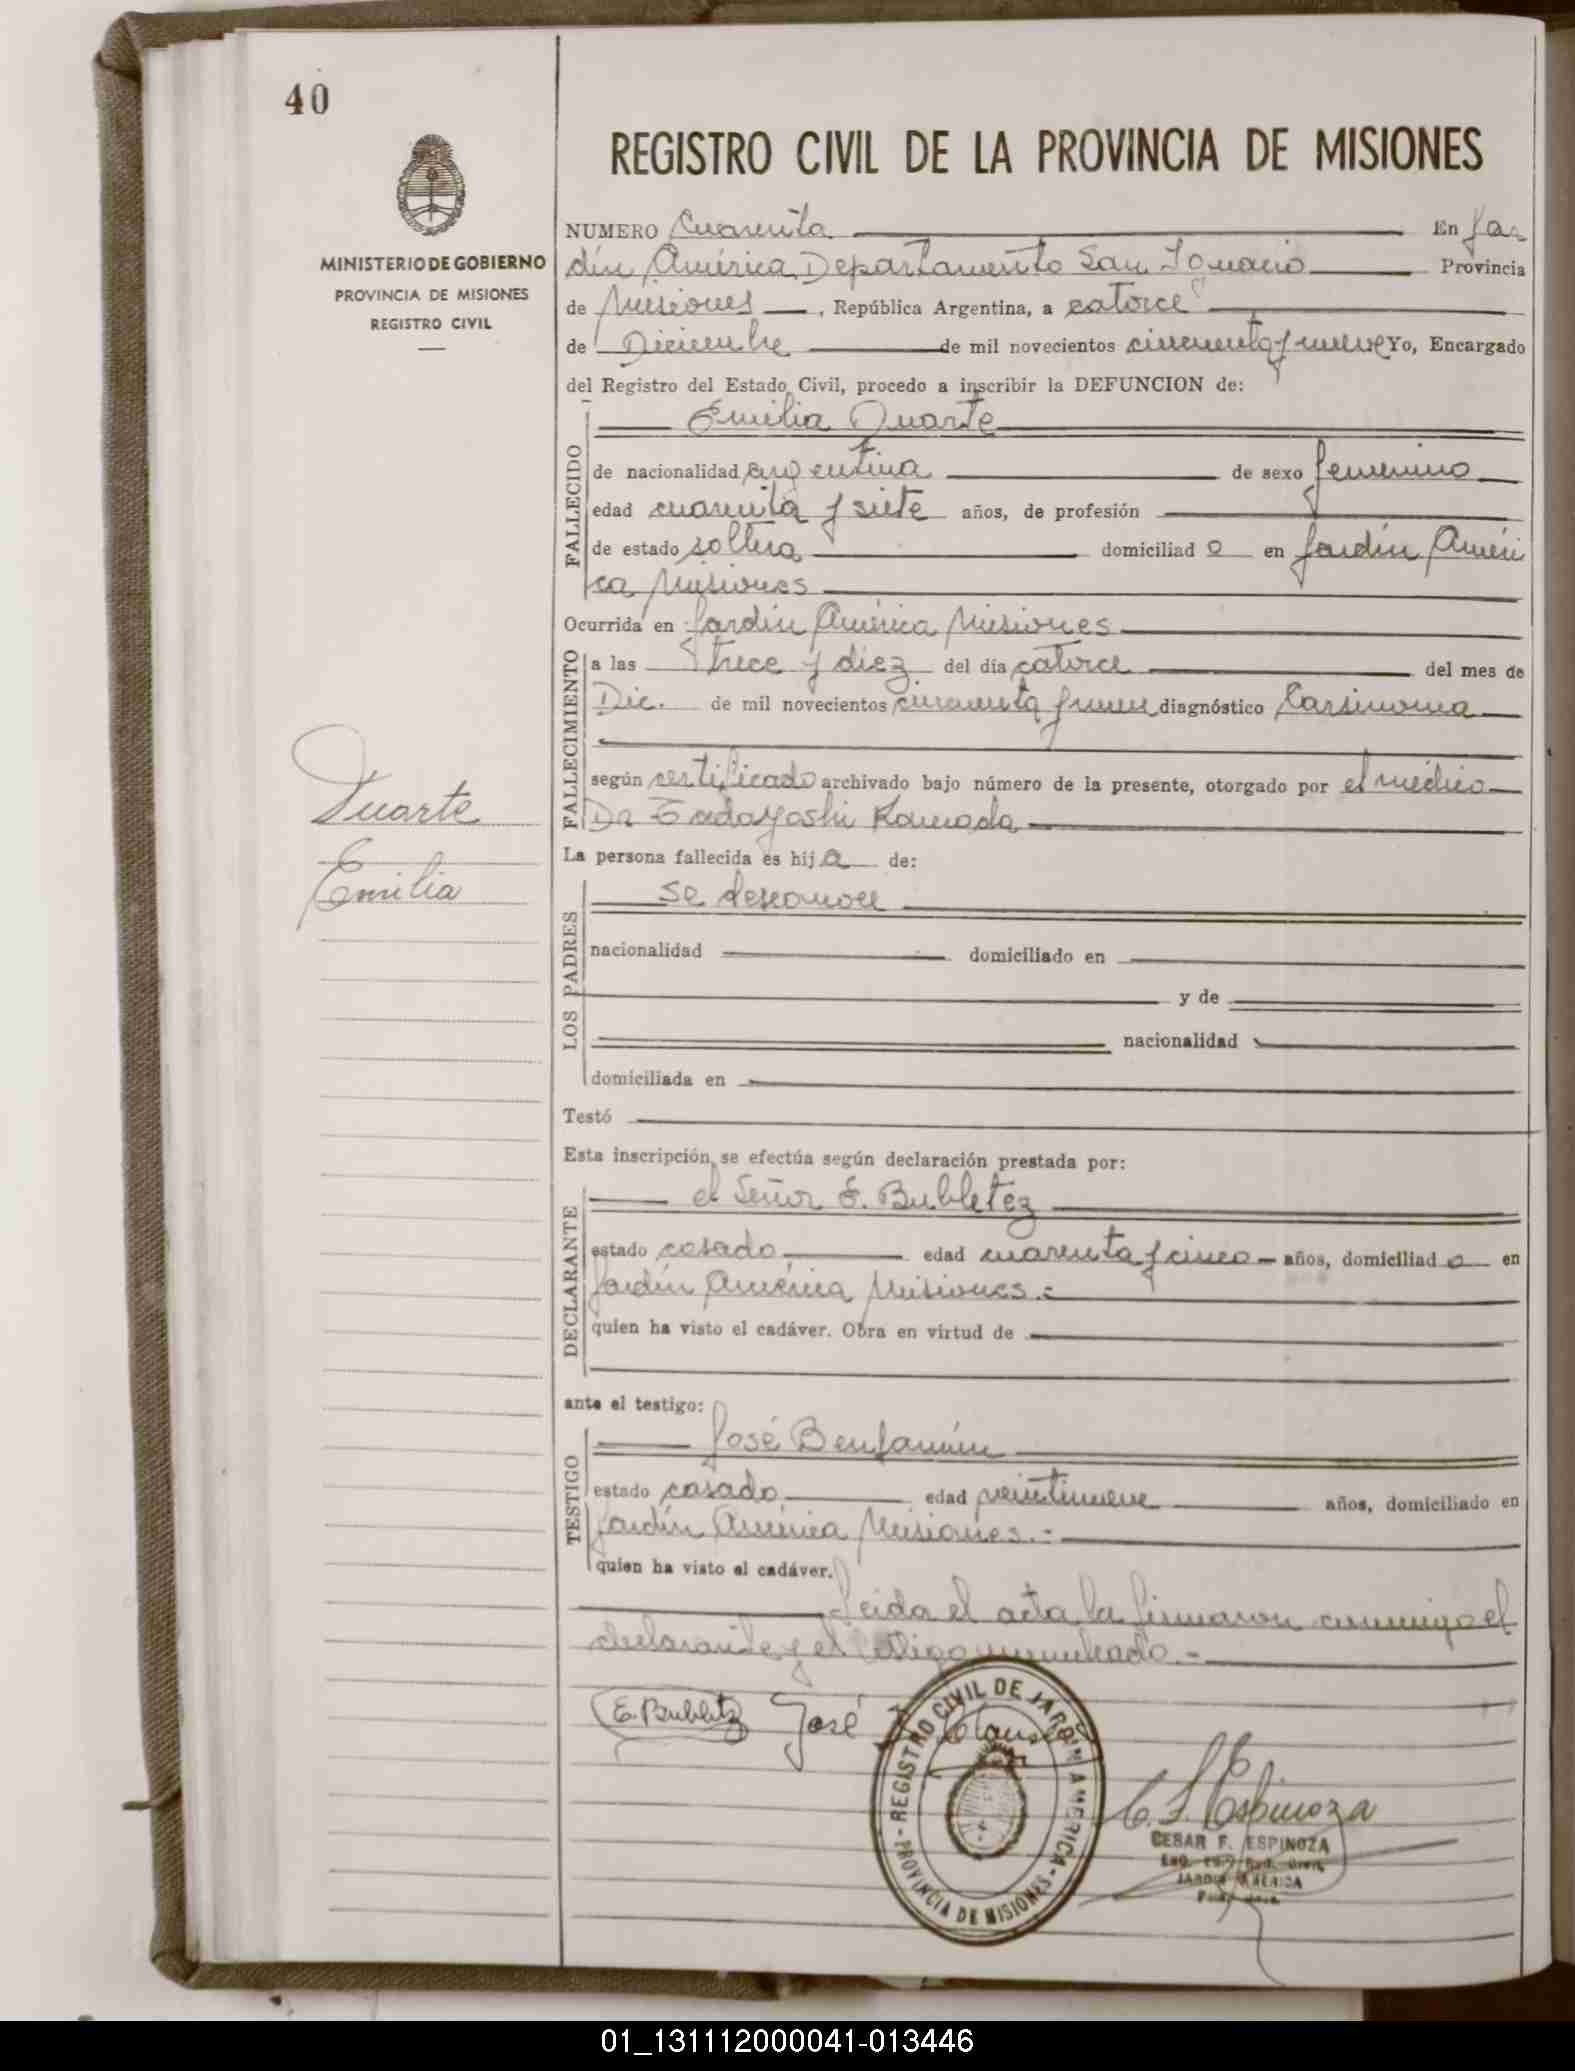 40
MINISTERIO DE GOBIERNO
PROVINCIA DE MISIONES
REGISTRO CIVIL
REGISTRO CIVIL DE LA PROVINCIA DE MISIONES
NUMERO Cuarenta En Jar
dín América Departamento San Ignacio Provincia
de Misiones, República Argentina, a catorce
de Diciembre de mil novecientos cincuenta y nueve Yo, Encargado
del Registro del Estado Civil, procedo a inscribir la DEFUNCION de:
Emilia Duarte
FALLECIDO
de nacionalidad argentina de sexo femenino
edad cuarenta y siete años, de profesión
de estado soltera domiciliado en Jardín Améri
ca Misiones
Ocurrida en Jardín América Misiones
FALLECIMIENTO
a las trece y diez del día catorce del mes de
Dic. de mil novecientos cincuenta y nueve diagnóstico Carsinoma
según certificado archivado bajo número de la presente, otorgado por el médico
Dr Tadayoshi Kamada
Duarte
Emilia
La persona fallecida es hija de:
LOS PADRES
se desconoce
nacionalidad domiciliado en
y de
nacionalidad
domiciliada en
Testó
Esta inscripción se efectúa según declaración prestada por:
DECLARANTE
el Señor E. Bubletez
estado casado edad cuarenta y cinco años, domiciliado en
Jardín América Misiones.-
quien ha visto el cadáver. Obra en virtud de
ante el testigo:
TESTIGO
José Benjamín
estado casado edad veintinueve años, domiciliado en
Jardín América Misiones.-
quien ha visto el cadáver.
Leida el acta la firmaron conmigo el
declarante y el testigo nombrado.-
E. Bublitz José
REGISTRO CIVIL DE JARDIN AMERICA
- PROVINCIA DE MISIONES -
C. F. Espinoza
CESAR F. ESPINOZA
JARDIN AMERICA
01_131112000041-013446